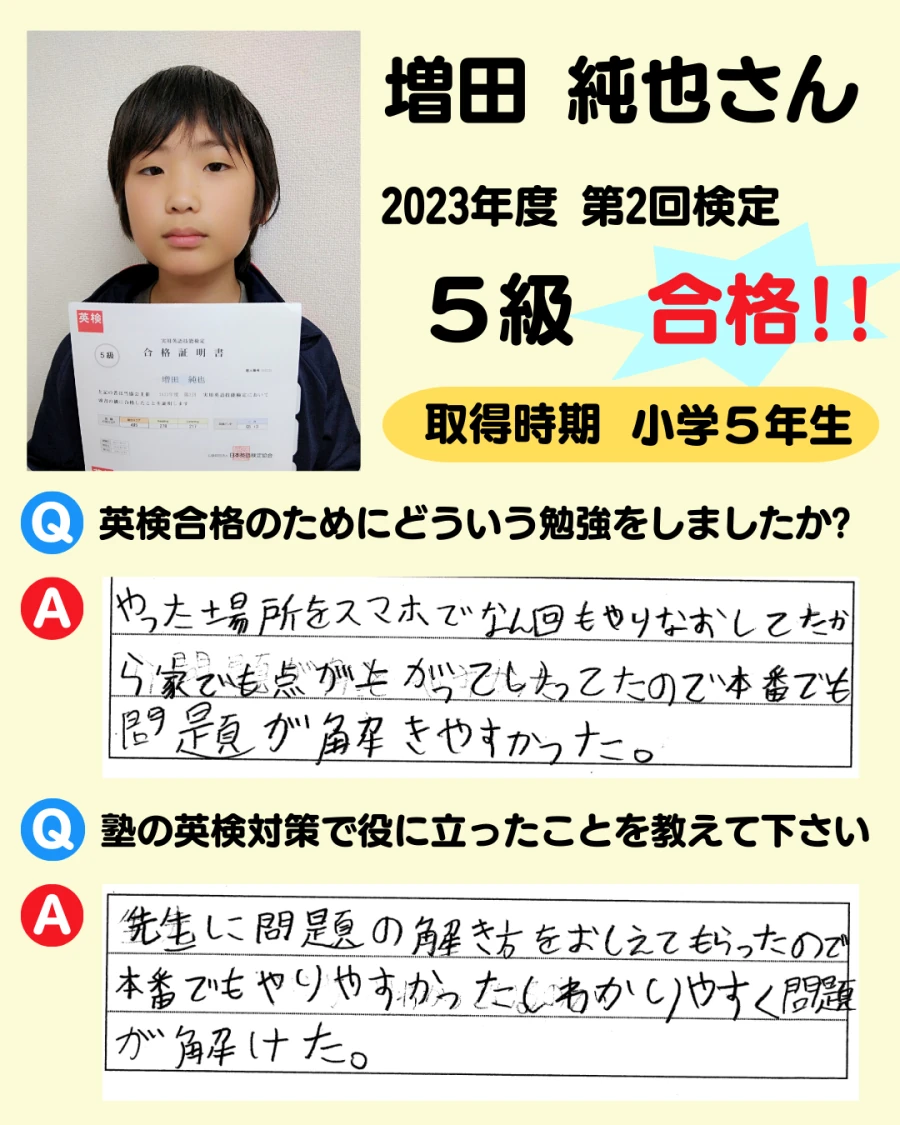 増田 純也さん
2023年度 第2回検定
5級 合格!!
取得時期 小学5年生
英検
実用英語技能検定
5級
合格証明書
増田 純也
日本英語検定協会
Q 英検合格のためにどういう勉強をしましたか?
A やった場所をスマホでなん回もやりなおしてたか
ら家でも点が上がってしまってたので本番でも
問題が解きやすかった。
Q 塾の英検対策で役に立ったことを教えて下さい
A 先生に問題の解き方をおしえてもらったので
本番でもやりやすかったしわかりやすく問題
が解けた。